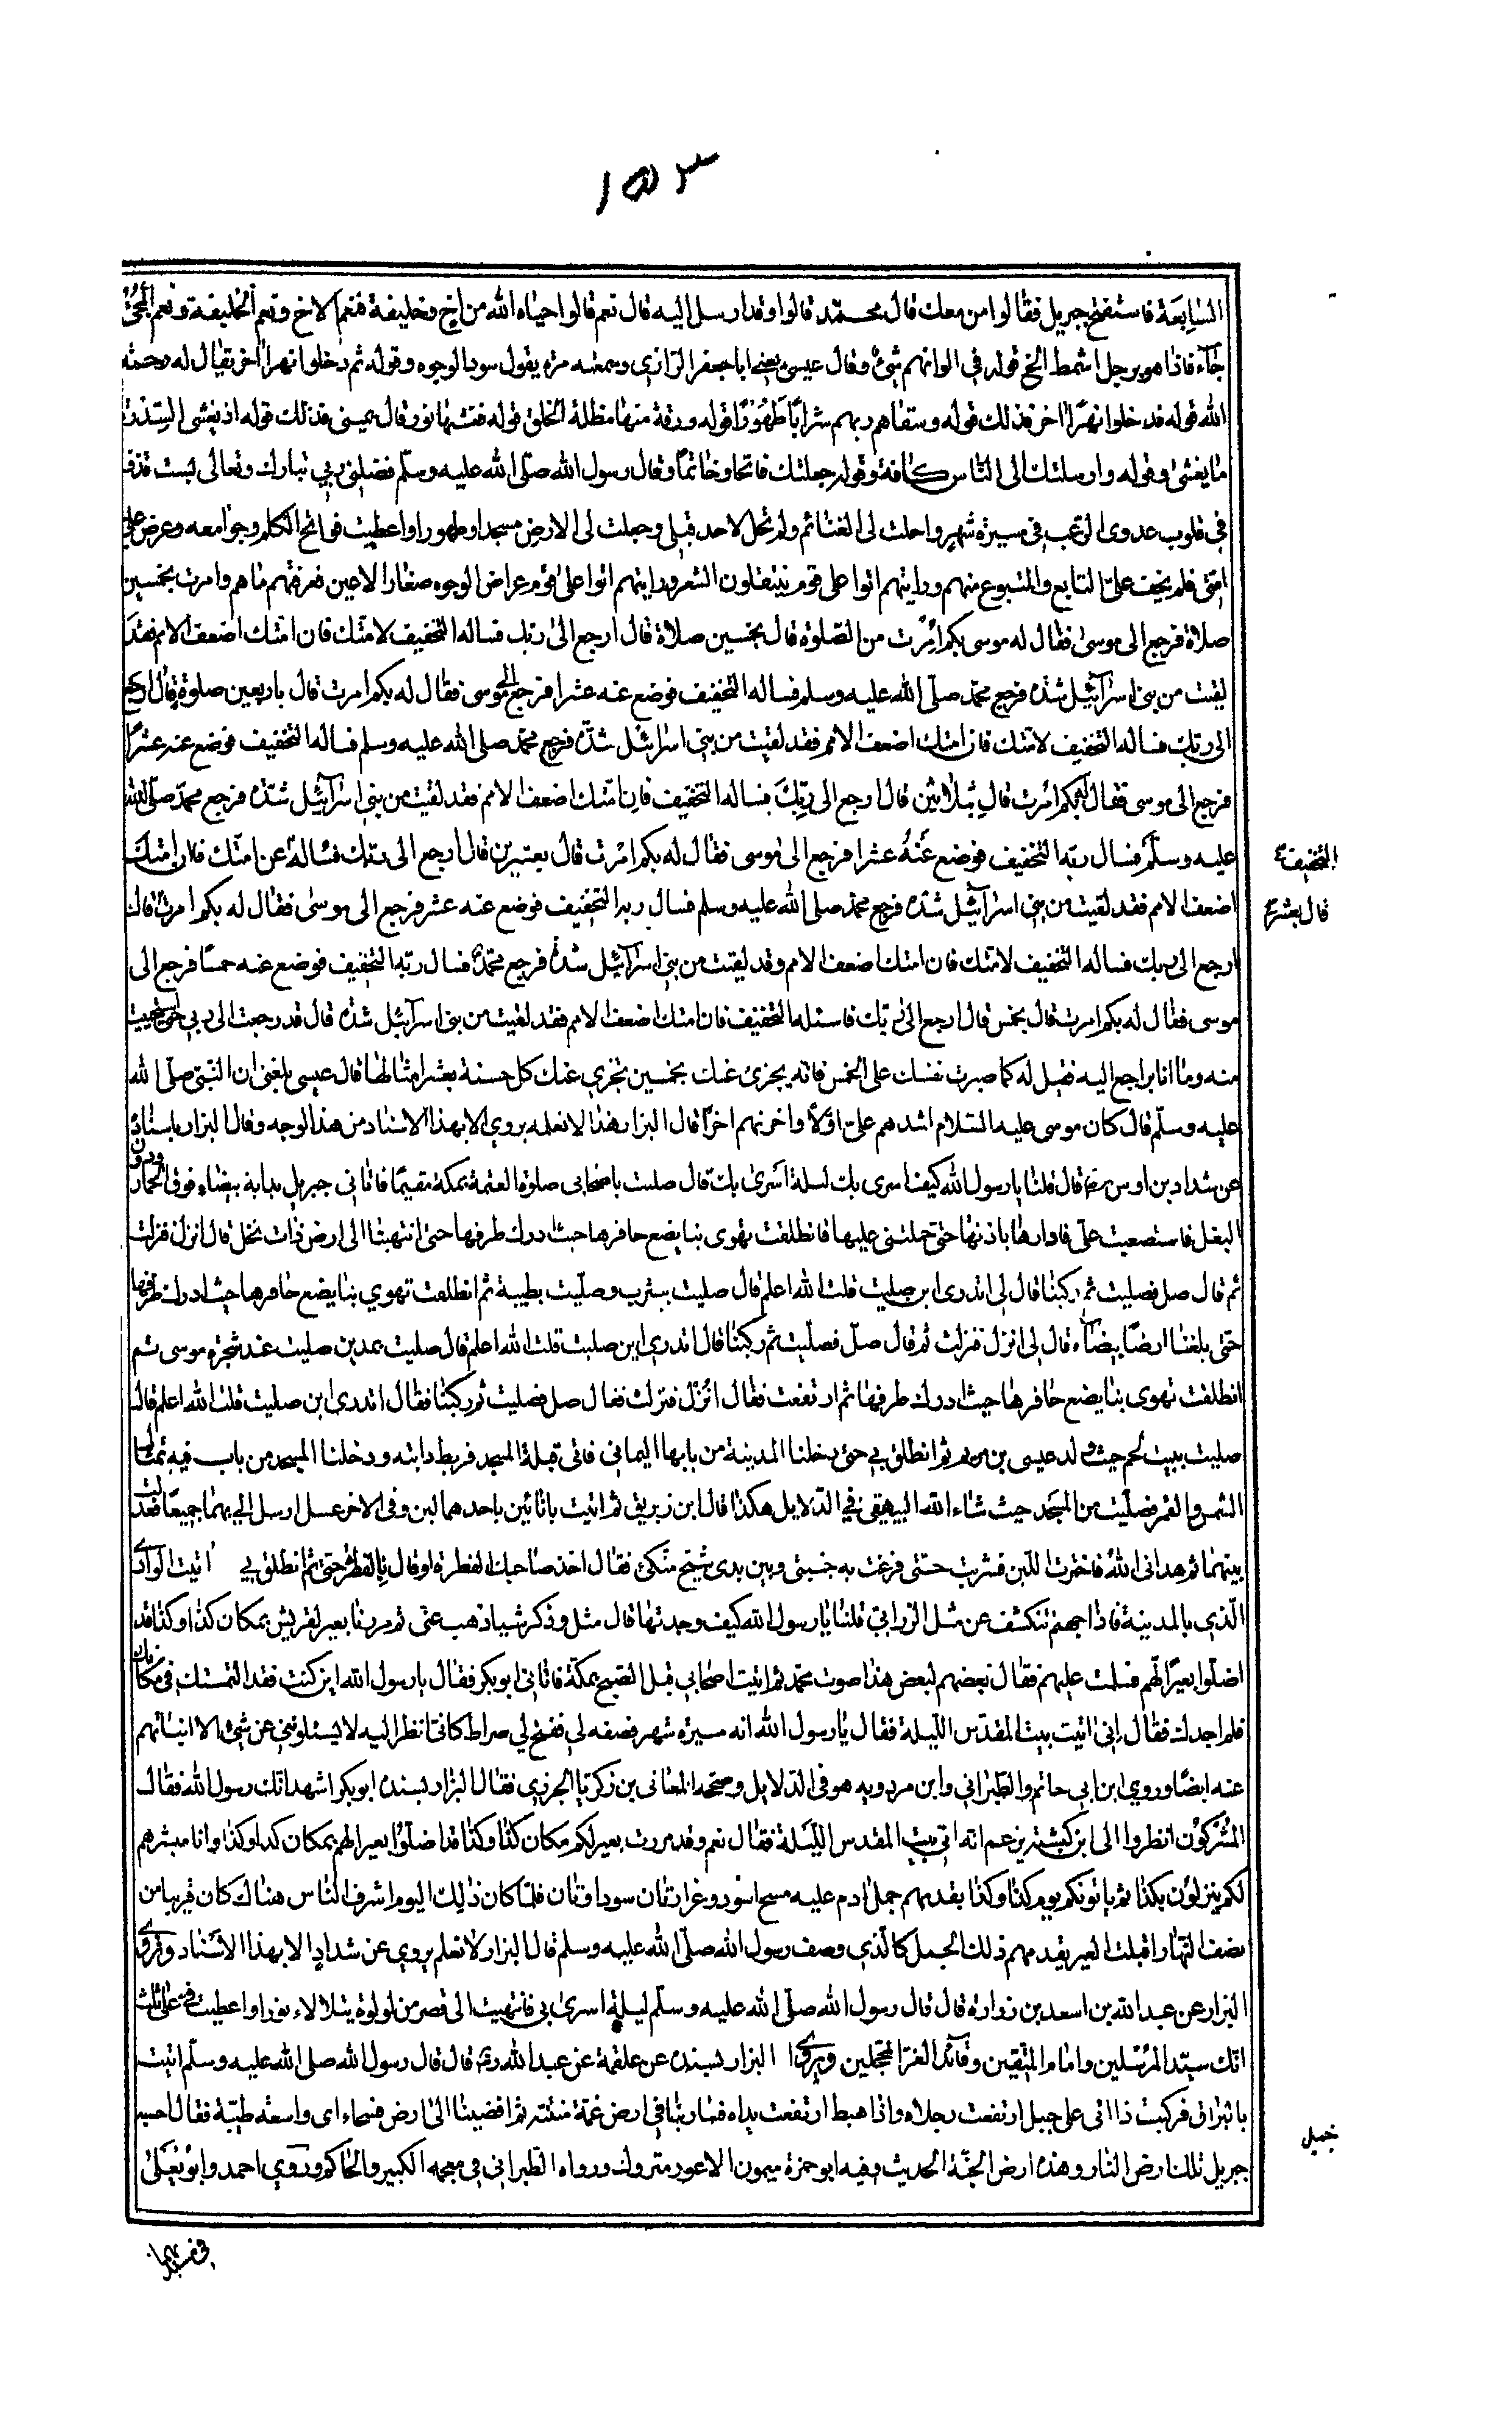 ١٥٣
السابعة فاستفتح جبريل فقالوا من معك قال محمد قالوا وقد ارسل اليه قال نعم قالوا حياه الله من اخ وخليفة فنعم الاخ ونعم الخليفة ونعم المجئ
جآء فاذا هو برجل اشمط الخ قوله في الوانهم شئ وقال عيسى يعني ابا جعفر الرازي وسمعته مرة يقول سود الوجوه وقوله ثم دخلوا نهرا اخر يقال له رحمة
الله قوله قد خلوا نهرا اخر فذلك قوله وسقاهم ربهم شرابا طهورا قوله ورقة منها مظلة الخلق قوله فتشها نور وقال بميني فذلك قوله اذ يغشى السدرة
ما يغشى وقوله وارسلتك الى الناس كافة وقوله جعلتك فاتحا وخاتما وقال رسول الله صلى الله عليه وسلم فضلني ربي تبارك وتعالى بست قذف
في قلوب عدوى الرعب في مسيرة شهر واحلت لى الغنائم ولم تحل لاحد قبلى وجعلت لى الارض مسجدا وطهورا واعطيت فواتح الكلم وجوامعه وعرض على
امتى فلم يخف على التابع والمتبوع منهم ورايتهم اتوا على قوم ينتعلون الشعر ورايتهم اتوا على قوم عراض الوجوه صغار الاعين فعرفتهم ما هم وامرت بخمسين
صلاة فرجع الى موسى فقال له موسى بكم امرت من الصلوة قال بخمسين صلاة قال ارجع الى ربك فساله التخفيف لامتك فان امتك اضعف الامم فقد
لقيت من بنى اسرآئيل شدة فرجع محمد صلى الله عليه وسلم فساله التخفيف فوضع عنه عشرا فرجع الى موسى فقال له بكم امرت قال باربعين صلوة قال ارجع
الى ربك فساله التخفيف لامتك فان امتك اضعف الامم فقد لقيت من بنى اسرائيل شدة فرجع محمد صلى الله عليه وسلم فساله التخفيف فوضع عنه عشرا
فرجع الى موسى فقال له بكم امرت قال بثلاثين قال ارجع الى ربك فساله التخفيف فان امتك اضعف الامم فقد لقيت من بنى اسرآئيل شدة فرجع محمد صلى الله
عليه وسلم فسال ربه التخفيف فوضع عنه عشرا فرجع الى موسى فقال له بكم امرت قال بعشرين قال ارجع الى ربك فساله عن امتك فان امتك
التخفيف
اضعف الامم فقد لقيت من بنى اسرآئيل شدة فرجع محمد صلى الله عليه وسلم فسال ربه التخفيف فوضع عنه عشر فرجع الى موسى فقال له بكم امرت قال
قال بعشر
ارجع الى ربك فساله التخفيف لامتك فان امتك اضعف الامم وقد لقيت من بنى اسرآئيل شدة فرجع محمد فسال ربه التخفيف فوضع عنه خمسا فرجع الى
موسى فقال له بكم امرت قال بخمس قال ارجع الى ربك فاسئله التخفيف فان امتك اضعف الامم فقد لقيت من بنى اسرآئيل شدة قال قد رجعت الى ربي حتى استحييت
منه وما انا براجع اليه فقيل له كما صبرت نفسك على الخمس فانه يجزئ عنك بخمسين تجزي عنك كل حسنة بعشر امثالها قال عيسى بلغنى ان النبي صلى الله
عليه وسلم قال كان موسى عليه السلام اشدهم على اولا واخرنهم اخرا قال البزار هذا لا نعلمه يروي الا بهذا الاسناد من هذا الوجه وقال البزار باسناد
عن شداد بن اوس قال قلنا يا رسول الله كيف اسرى بك ليلة اسرى بك قال صليت باصحابى صلوة العتمة بمكة مقيما فاتانى جبريل بدابة بيضاء فوق الحمار ودون
البغل فاستصعبت على فادارها باذنها حتى حملتني عليها فانطلقت تهوى بنا يضع حافرها حيث ادرك طرفها حتى انتهينا الى ارض ذات نخل قال انزل فنزلت
ثم قال صل فصليت ثم ركبنا قال لى اتدرى اين صليت قلت الله اعلم قال صليت بيثرب وصليت بطيبة ثم انطلقت تهوي بنا يضع حافرها حيث ادرك طرفها
حتى بلغنا ارضا بيضاء قال لى انزل فنزلت ثم قال صل فصليت ثم ركبنا قال اتدري اين صليت قلت الله اعلم قال صليت بمدين صليت عند شجرة موسى ثم
انطلقت تهوى بنا يضع حافرها حيث ادرك طرفها ثم ارتفعت فقال انزل فنزلت فقال صل فصليت ثم ركبنا فقال اتدرى اين صليت قلت الله اعلم قال
صليت ببيت لحم حيث ولد عيسى بن مريم ثم انطلق بي حتى دخلنا المدينة من بابها اليمانى فاتى قبلة المسجد فربط دابته ودخلنا المسجد من باب فيه تمثال
الشمس والقمر فصليت من المسجد حيث شاء الله البيهقي في الدلايل هكذا قال ابن زبريق ثم اتيت بانائين باحدهما لبن وفى الاخر عسل ارسل الى بهما جميعا فعدلت
بينهما ثم هدانى الله فاخترت اللبن فشربت حتى فرغت به جبينى وبين يدى شيخ متكئ فقال اخذ صاحبك الفطرة او قال بالفطرة ثم انطلق بي حتى اتيت الوادى
الذي بالمدينة فاذا جهنم تنكشف عن مثل الزرابي قلنا يا رسول الله كيف وجدتها قال مثل وذكر شيا ذهب عنى ثم مررنا بعير لقريش بمكان كذا وكذا قد
اضلوا بعيرا لهم فسلمت عليهم فقال بعضهم لبعض هذا صوت محمد ثم اتيت اصحابي قبل الصبح بمكة فاتانى ابو بكر فقال يا رسول الله اين كنت فقد التمستك في مكانك
فلم اجدك فقال انى اتيت بيت المقدس الليلة فقال يا رسول الله انه مسيرة شهر فصفه لي ففتح لي صراط كانى انظر اليه لا يسئلونى عن شئ الا انباتهم
عنه ايضا وروي ابن ابى حاتم والطبرانى وابن مردويه هو فى الدلايل وصححه المعانى بن زكريا الجرزى فقال البزار بسنده ابو بكر اشهد انك رسول الله فقال
المشركون انظروا الى ابن كبشة يزعم انه اتى بيت المقدس الليلة فقال نعم وقد مررت بعير لكم مكان كذا وكذا قد اضلوا بعيرا لهم بمكان كذا وكذا وانا مبشرهم
لكم ينزلون بكذا ثم ياتونكم يوم كذا وكذا يقدمهم جمل ادم عليه مسح اسود وغرارتان سوداوتان فلما كان ذلك اليوم اشرف الناس هناك كان قريبا من
نصف النهار اقبلت العير يقدمهم ذلك الجمل كالذي وصف رسول الله صلى الله عليه وسلم قال البزار لا نعلم يروي عن شداد الا بهذا الاسناد وروى
البزار عن عبد الله بن اسعد بن زرارة قال قال رسول الله صلى الله عليه وسلم ليلة اسرى بى فانتهيت الى قصر من لولوة يتلالاء نورا واعطيت ثلث
انك سيد المرسلين وامام المتقين وقائد الغر المحجلين ويروى البزار بسنده عن علقمة عن عبد الله قال قال رسول الله صلى الله عليه وسلم اتيت
بالبراق فركبت ذا اتى على جبل ارتفعت رجلاه واذا هبط ارتفعت يداه فسار بنا فى ارض غمة منتنة ثم افضينا الى ارض فيحاء اى واسعة طيبة فقال
جبريل تلك ارض النار وهذه ارض الجنة الحديث وفيه ابو حمزة ميمون الاعور متروك ورواه الطبرانى فى معجمه الكبير والحاكم وروي احمد وابو يعلى